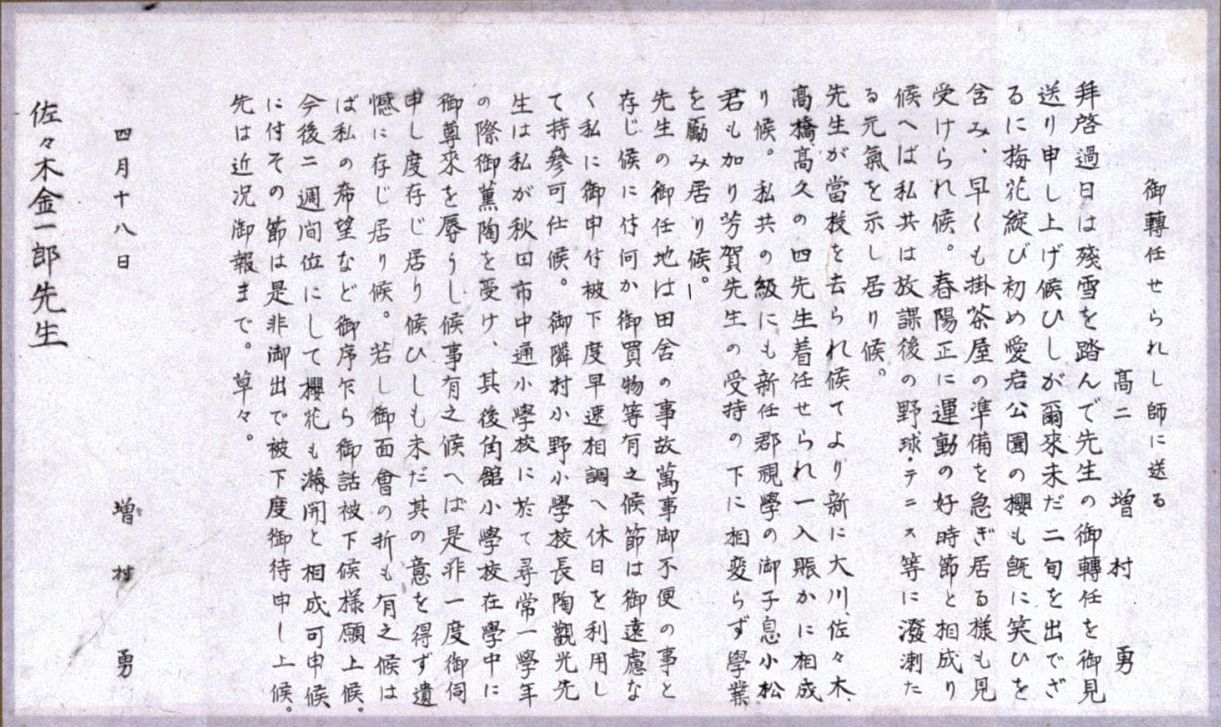 御轉任せられし師に送る
高二 増村 勇
拜啓過日は殘雪を踏んで先生の御轉任を御見
送り申し上げ候ひしが爾來未だ二旬を出でざ
るに梅花綻び初め愛宕公園の櫻も既に笑ひを
含み、早くも掛茶屋の準備を急ぎ居る樣も見
受けられ候。春陽正に運動の好時節と相成り
候へば私共は放課後の野球・テニス等に潑溂た
る元氣を示し居り候。
先生が當校を去られ候てより新に大川、佐々木、
高橋、高久の四先生着任せられ一入賑かに相成
り候。私共の級にも新任郡視學の御子息小松
君も加り芳賀先生の受持の下に相変らず學業
を勵み居り候。
先生の御任地は田舍の事故萬事御不便の事と
存じ候に付何か御買物等有之候節は御遠慮な
く私に御申付被下度早速相調へ休日を利用し
て持參可仕候。御隣村小野小學校長陶觀光先
生は私が秋田市中通小學校に於て尋常一學年
の際御薰陶を受け、其後角館小學校在學中に
御尊來を辱うし候事有之候へば是非一度御伺
申し度存じ居り候ひしも未だ其の意を得ず遺
憾に存じ居り候。若し御面會の折も有之候は
ば私の希望など御序乍ら御話被下候樣願上候。
今後二週間位にして櫻花も滿開と相成可申候
に付その節は是非御出で被下度御待申し上候。
先は近況御報まで。草々。
四月十八日 増村 勇
佐々木金一郎先生